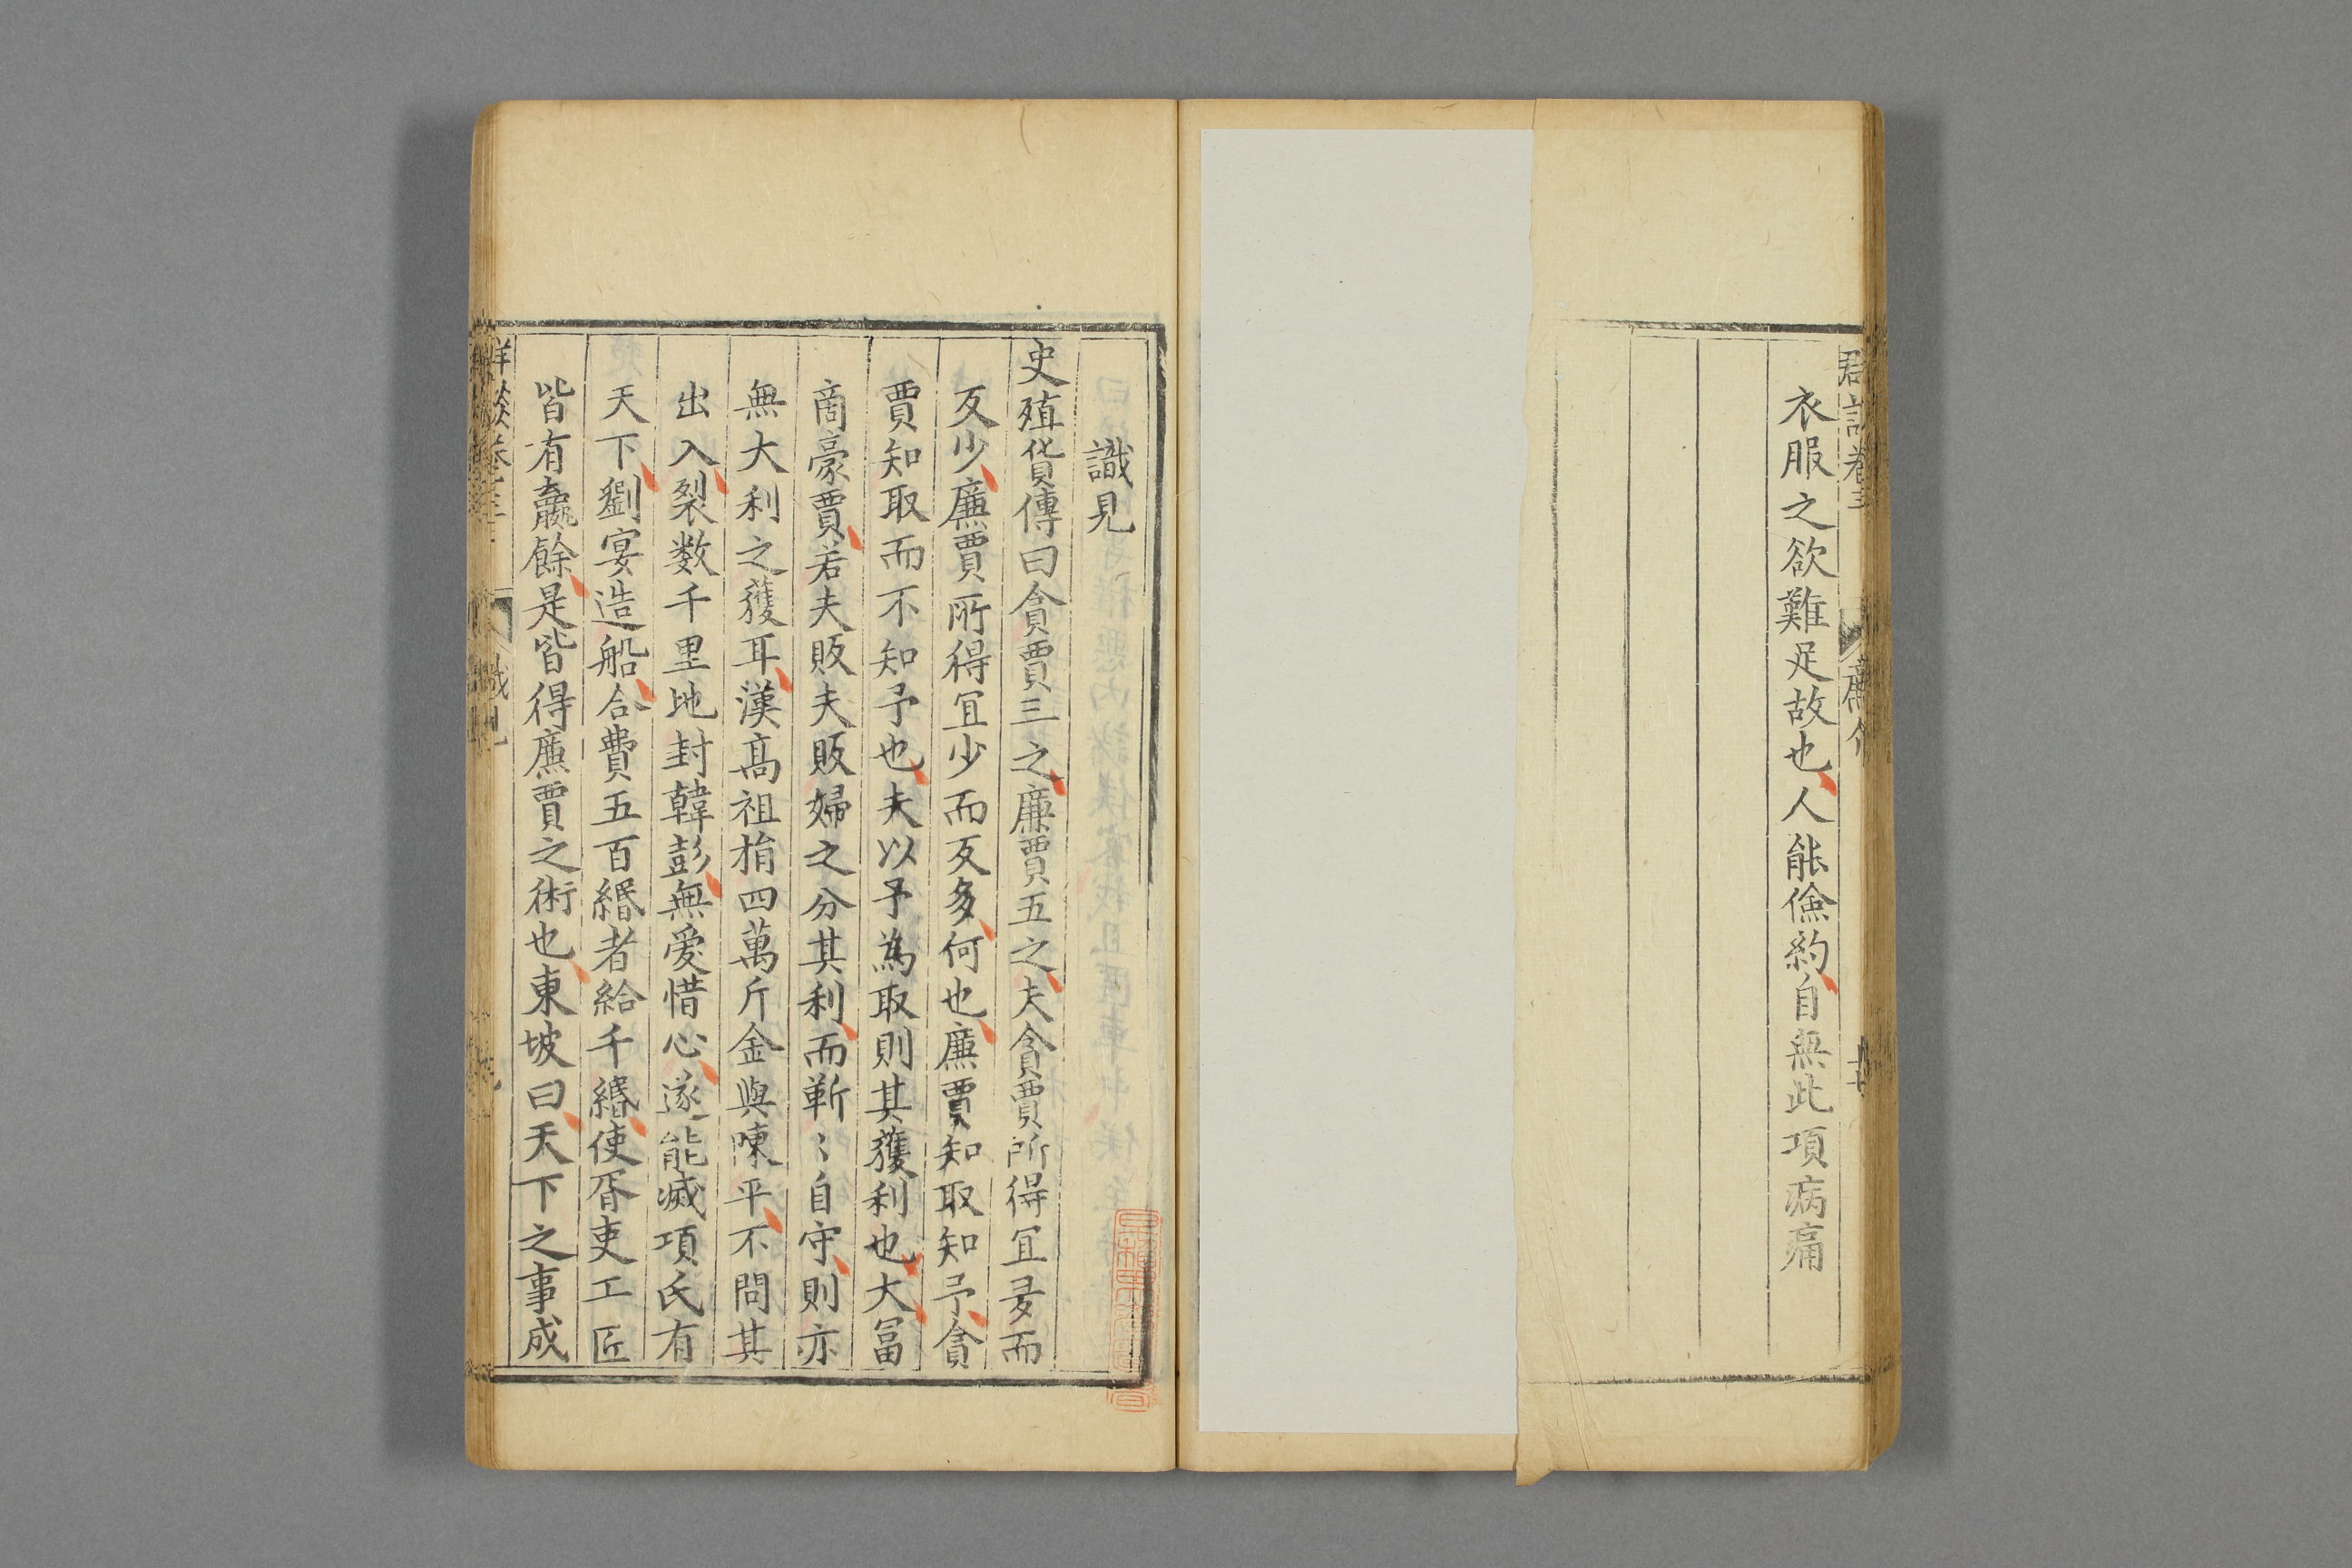 衣服之欲難足故也人能儉約自無此項病痛
識見
史殖貨傳曰貪賈三之廉賈五之夫貪賈所得宜多而
反少廉賈所得宜少而反多何也廉賈知取知予貪
賈知取而不知予也夫以予為取則其獲利也大富
商豪賈若夫販夫販婦之分其利而靳〻自守則亦
無大利之獲耳漢高祖捐四萬斤金與陳平不問其
出入裂数千里地封韓彭無愛惜心遂能滅項氏有
天下劉宴造船合費五百緡者給千緡使胥吏工匠
皆有羸餘是皆得廉賈之術也東坡曰天下之事成